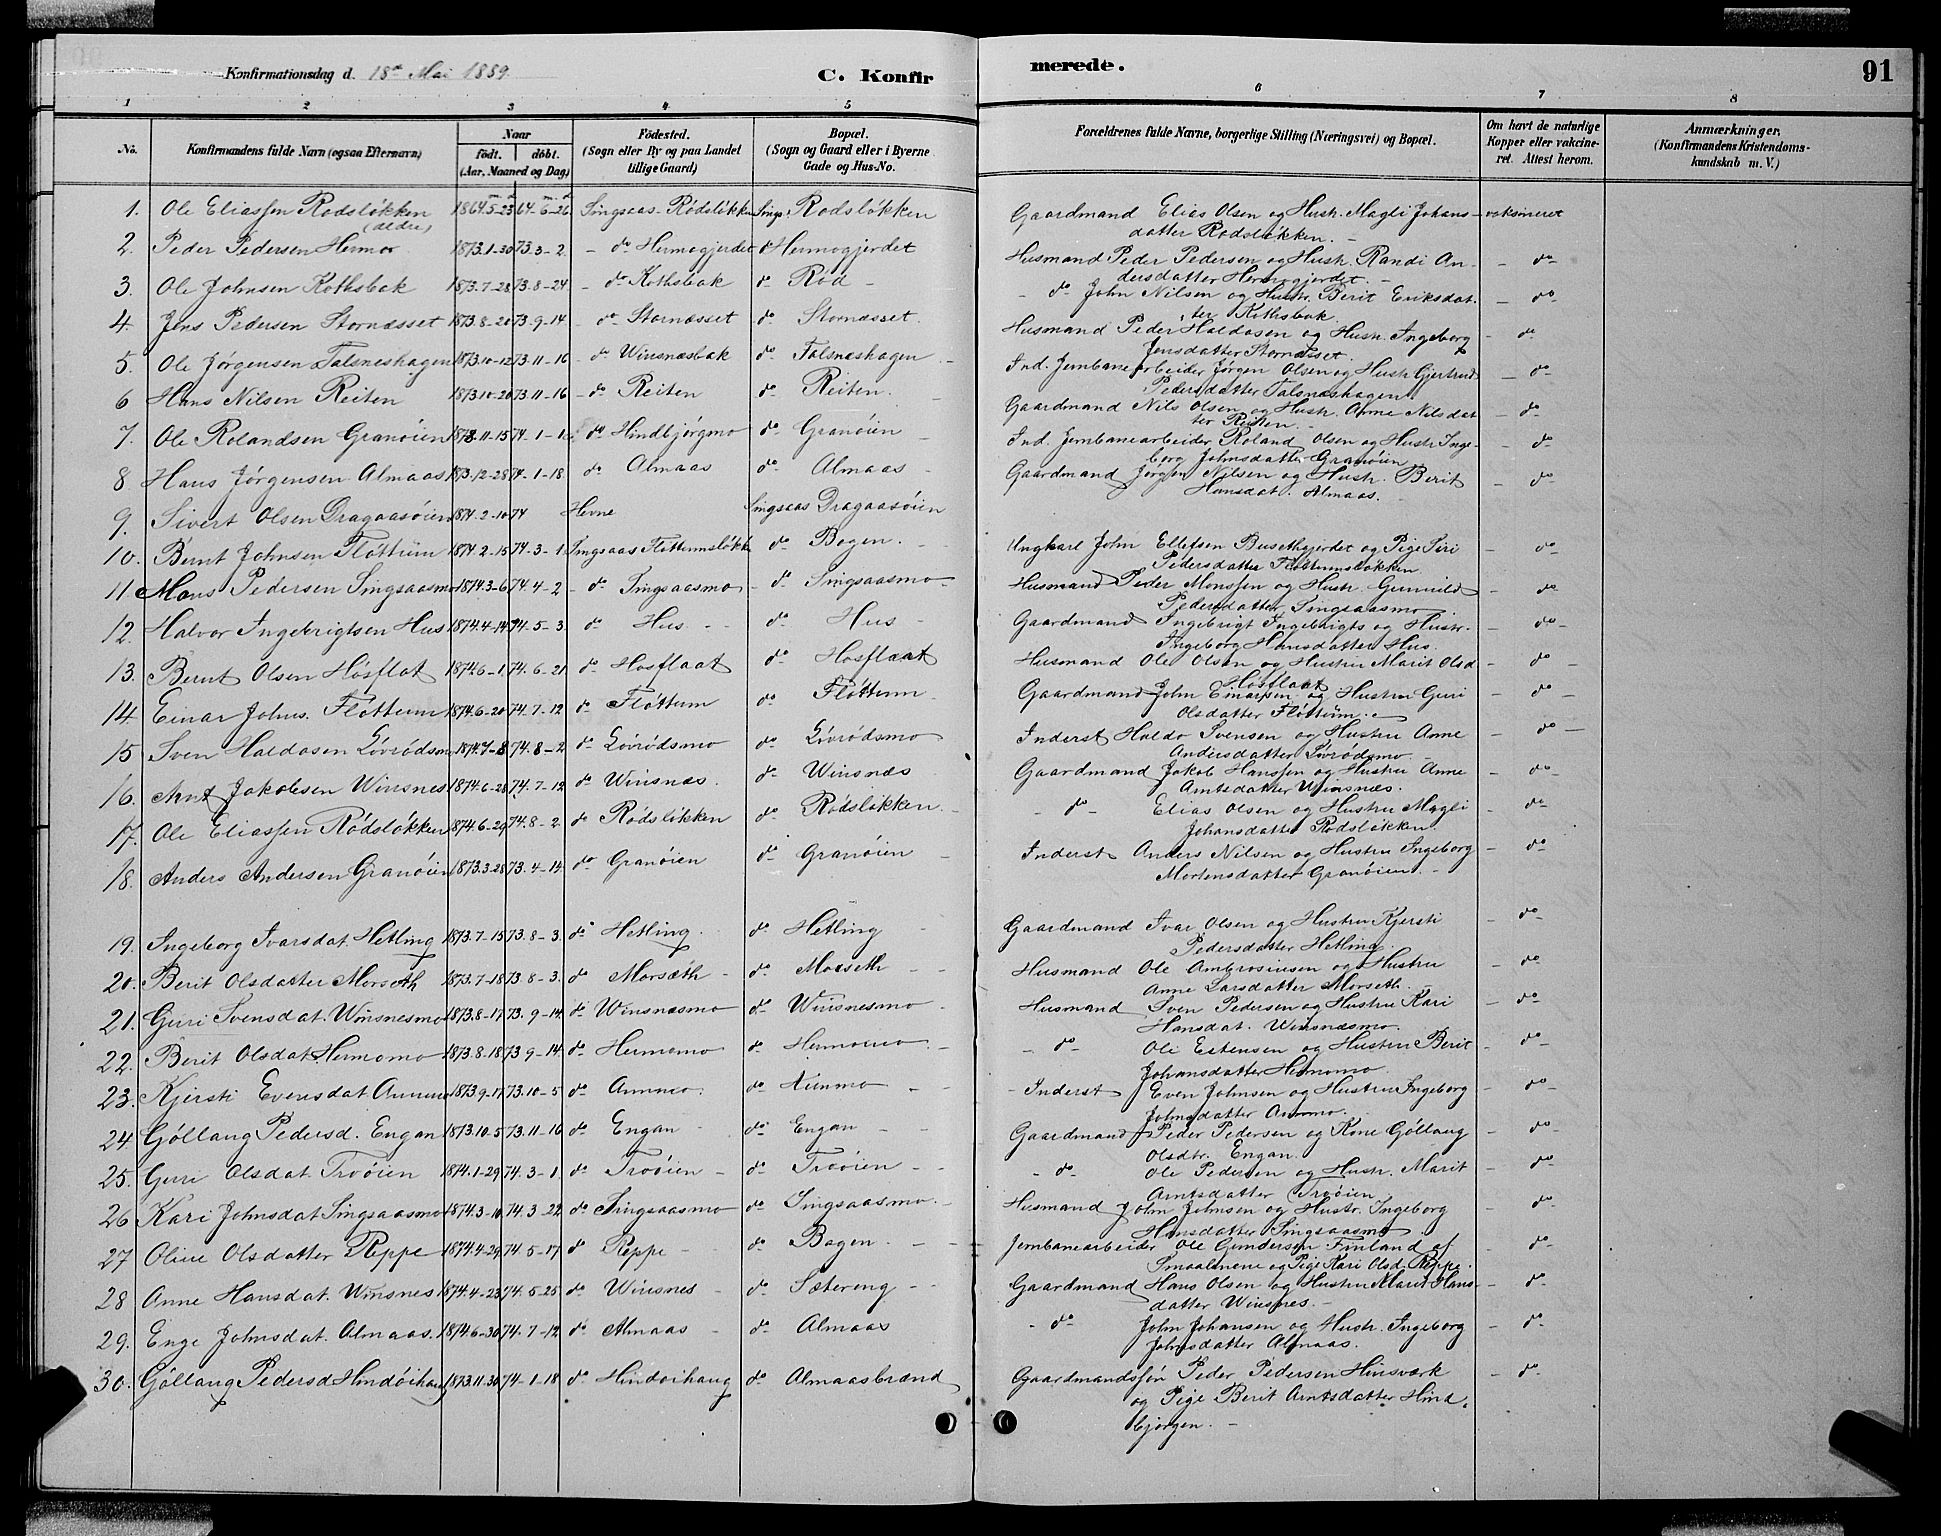 Konfirmationsdag d. 18de Mai 1889. C. Konfirmerede. 91
1 2 3 4 5 6 7 8
No. Konfirmandens fulde Navn (ogsaa Efternavn) Naar født. døbt. (Aar, Maaned og Dag) Fødested. (Sogn eller By og paa Landet tillige Gaard) Bopæl. (Sogn og Gaard eller i Byerne Gade og Hus-No. Forældrenes fulde Navne, borgerlige Stilling (Næringsvei) og Bopæl. Om havt de naturlige Kopper eller vakcineret. Attest herom. Anmærkninger. (Konfirmandens Kristendomskundskab m. V.)
1. Ole Eliassen Rødsløkken 1864.5-23 64-6-26 Singsaas Rødsløkken Sings. Rødsløkken Gaardmand Elias Olsen og Hustr. Magli Johans- vaksineret
datter Rødsløkken.
2. Peder Pedersen Hermo 1873.1-30 73.3-2 do Hermogjerdet do Hermogjerdet Husmand Peder Pedersen og Hustr. Randi An- do
dersdatter Hermogjerdet.
3. Ole Johnsen Kothsbak 1873.7-28 73.8-24 do Kothsbak do Rød do John Nilsen og Hustr. Berit Eriksdat- do
ter Kothsbak
4. Jens Pedersen Stornæsset 1873.8-20 73.9-14 do Stornæsset do Stornæsset Husmand Peder Haldosen og Hustr. Ingeborg do
Jensdatter Stornæsset.
5. Ole Jørgensen Talsneshagen 1873.10-12 73.11-16 do Winsnæsbak do Talsnæshagen Ind. Jernbanearbeider Jørgen Olsen og Hustr. Gjertrud do
Pedersdatter Talsnæshagen
6 Hans Nilsen Reiten 1873.10-20 73.11-16 do Reiten do Reiten. Gaardmand Nils Olsen og Hustr. Anne Nilsdat do
ter Reiten.
7. Ole Rolandsen Granøien 1873.11-15 74-1-1 do Hindbjørgmo do Granøien Ind. Jernbanearbeider Roland Olsen og Hustr. Inge- do
borg Johnsdatter Granøien
8 Hans Jørgensen Almaas 1873.12-28 74-1-18 do Almaas do Almaas Gaardmand Jørgen Nilsen og Hustr. Berit do
Hansdat. Almaas.
9. Sivert Olsen Dragaasøien 1874.2-10 74 Hevne Singsaas Dragaasøien
10. Bernt Johnsen Fløttum 1874.2-15 74.3-1 Singsaas Fløttumsløkk do Bogen. Ungkarl John Ellefsen Busethgjerdet og Pige Siri do
Pedersdatter Fløttumsløkken
11 Mons Pedersen Singsaasmo 1874.3-6 74.4-2 do Singsaasmo do Singsaasmo Husmand Peder Monssen og Hustr. Gunnild do
Pedersdatter Singsaasmo
12. Halvor Ingebrigtsen Hus 1874.4-14 74-5-3 do Hus do Hus Gaardmand Ingebrigt Ingebrigts og Hustr. do
Ingeborg Hansdatter Hus.
13. Bernt Olsen Høsflat 1874.6-1 74.6-21 do Høsflaat do Høsflaat Husmand Ole Olsen og Hustru Marit Olsd do
Høsflaat
14 Einar Johns. Fløttum 1874.6-20 74.7-12 do Fløttum do Fløttum Gaardmand John Einarsen og Hustru Guri do
Olsdatter Fløttum.
15 Sven Haldosen Løvrødsm 1874.7-8 74.8-2 do Løvrødsmo do Løvrødsmo Inderst Haldo Svensen og Hustru Anne do
Andersdatter Løvrødsmo
16. Arnt Jakobsen Winsnes 1874.6-28 74.7-12 do Winsnæs. do Winsnæs Gaardmand Jakob Hanssen og Hustru Anne do
Arntsdatter Winsnæs.
17. Ole Eliassen Rødsløkken 1874.6-29 74.8-2 do Rødsløkken do Rødsløkken do Elias Olsen og Hustru Magli do
Johansdatter Rødsløkken.
18. Anders Andersen Granøien 1873.3-28 73.4-14 do Granøien do Granøien Inderst Anders Nilsen og Hustru Ingeborg do
Mortensdatter Granøien.
19. Ingeborg Ivarsdat. Hetling 1873.7-15 73.8-3. do Hetling do Hetling Gaardmand Ivar Olsen og Hustru Kjersti do
Pedersdatter Hetling.
20. Berit Olsdatter Morseth 1873.7-18 73.8-3. do Morsæth do Morseth Husmand Ole Ambrosiusen og Hustru do
Anne Larsdatter Morseth.
21. Guri Svensdat. Winsnesmo 1873.8-17 73.9-14 do Winsnæsmo do Winsnesmo Husmand Sven Pedersen og Hustru Kari do
Hansdat. Winsnæsmo.
22. Berit Olsdat Hermomo 1873.8.18 73 9-14 do Hermomo do Hermomo do Ole Estensen og Hustru Berit do
Johansdatter Hermomo
23. Kjersti Evensdat Aunmo 1873.9-17 73.10-5 do Aunmo. do Aunmo Inderst Even Johnsen og Hustru Ingeborg do
Johnsdatter Aunmo.
24 Gøllaug Pedersd. Engan 1873.10-5 73.11-16 do Engan do Engan Gaardmand Peder Pedersen og Kone Gøllaug do
Olsdtr. Engan.
25. Guri Olsdat. Troøien 1874.1-29 74.3-1. do Troøien do Troøien do Ole Pedersen og Hustr. Marit do
Arntsdatter Troøien
26 Kari Johnsdat Singsaasmo 1874.3-10 74.3-22 do Singsaasmo do Singsaasmo. Husmand John Johnsen og Hustr. Ingeborg do
Hansdatter Singsaasmo
27 Oline Olsdatter Reppe 1874.4.29 74.5-17 do Reppe do Bogen. Jernbanearbeider Ole Gundersen Finland af do
Smaalenene og Pige Kari Olsd. Reppe.
28 Anne Hansdat. Winsnes 1874.4-23 74.5-25 do Winsnes do Sætereng Gaardmand Hans Olsen og Hustru Marit Hans- do
datter Winsnes.
29. Enge Johnsdat. Almaas. 1874.6-30 74.7-12 do Almaas do Almaas do John Johansen og Hustr. Ingeborg do
Johnsdatter Almaas.
30. Gøllaug Pedersd Hindøihaug 1873.11.30 74-1-18 do Hindøihaug do Almaasbrænd Gaardmandssøn Peder Pedersen Hinsværk do
og Pige Berit Arntsdatter Hind
bjørgen.